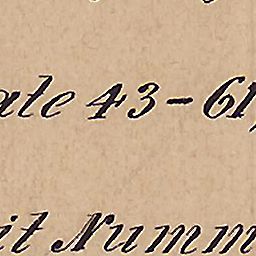 ate 43-61,
it Numm